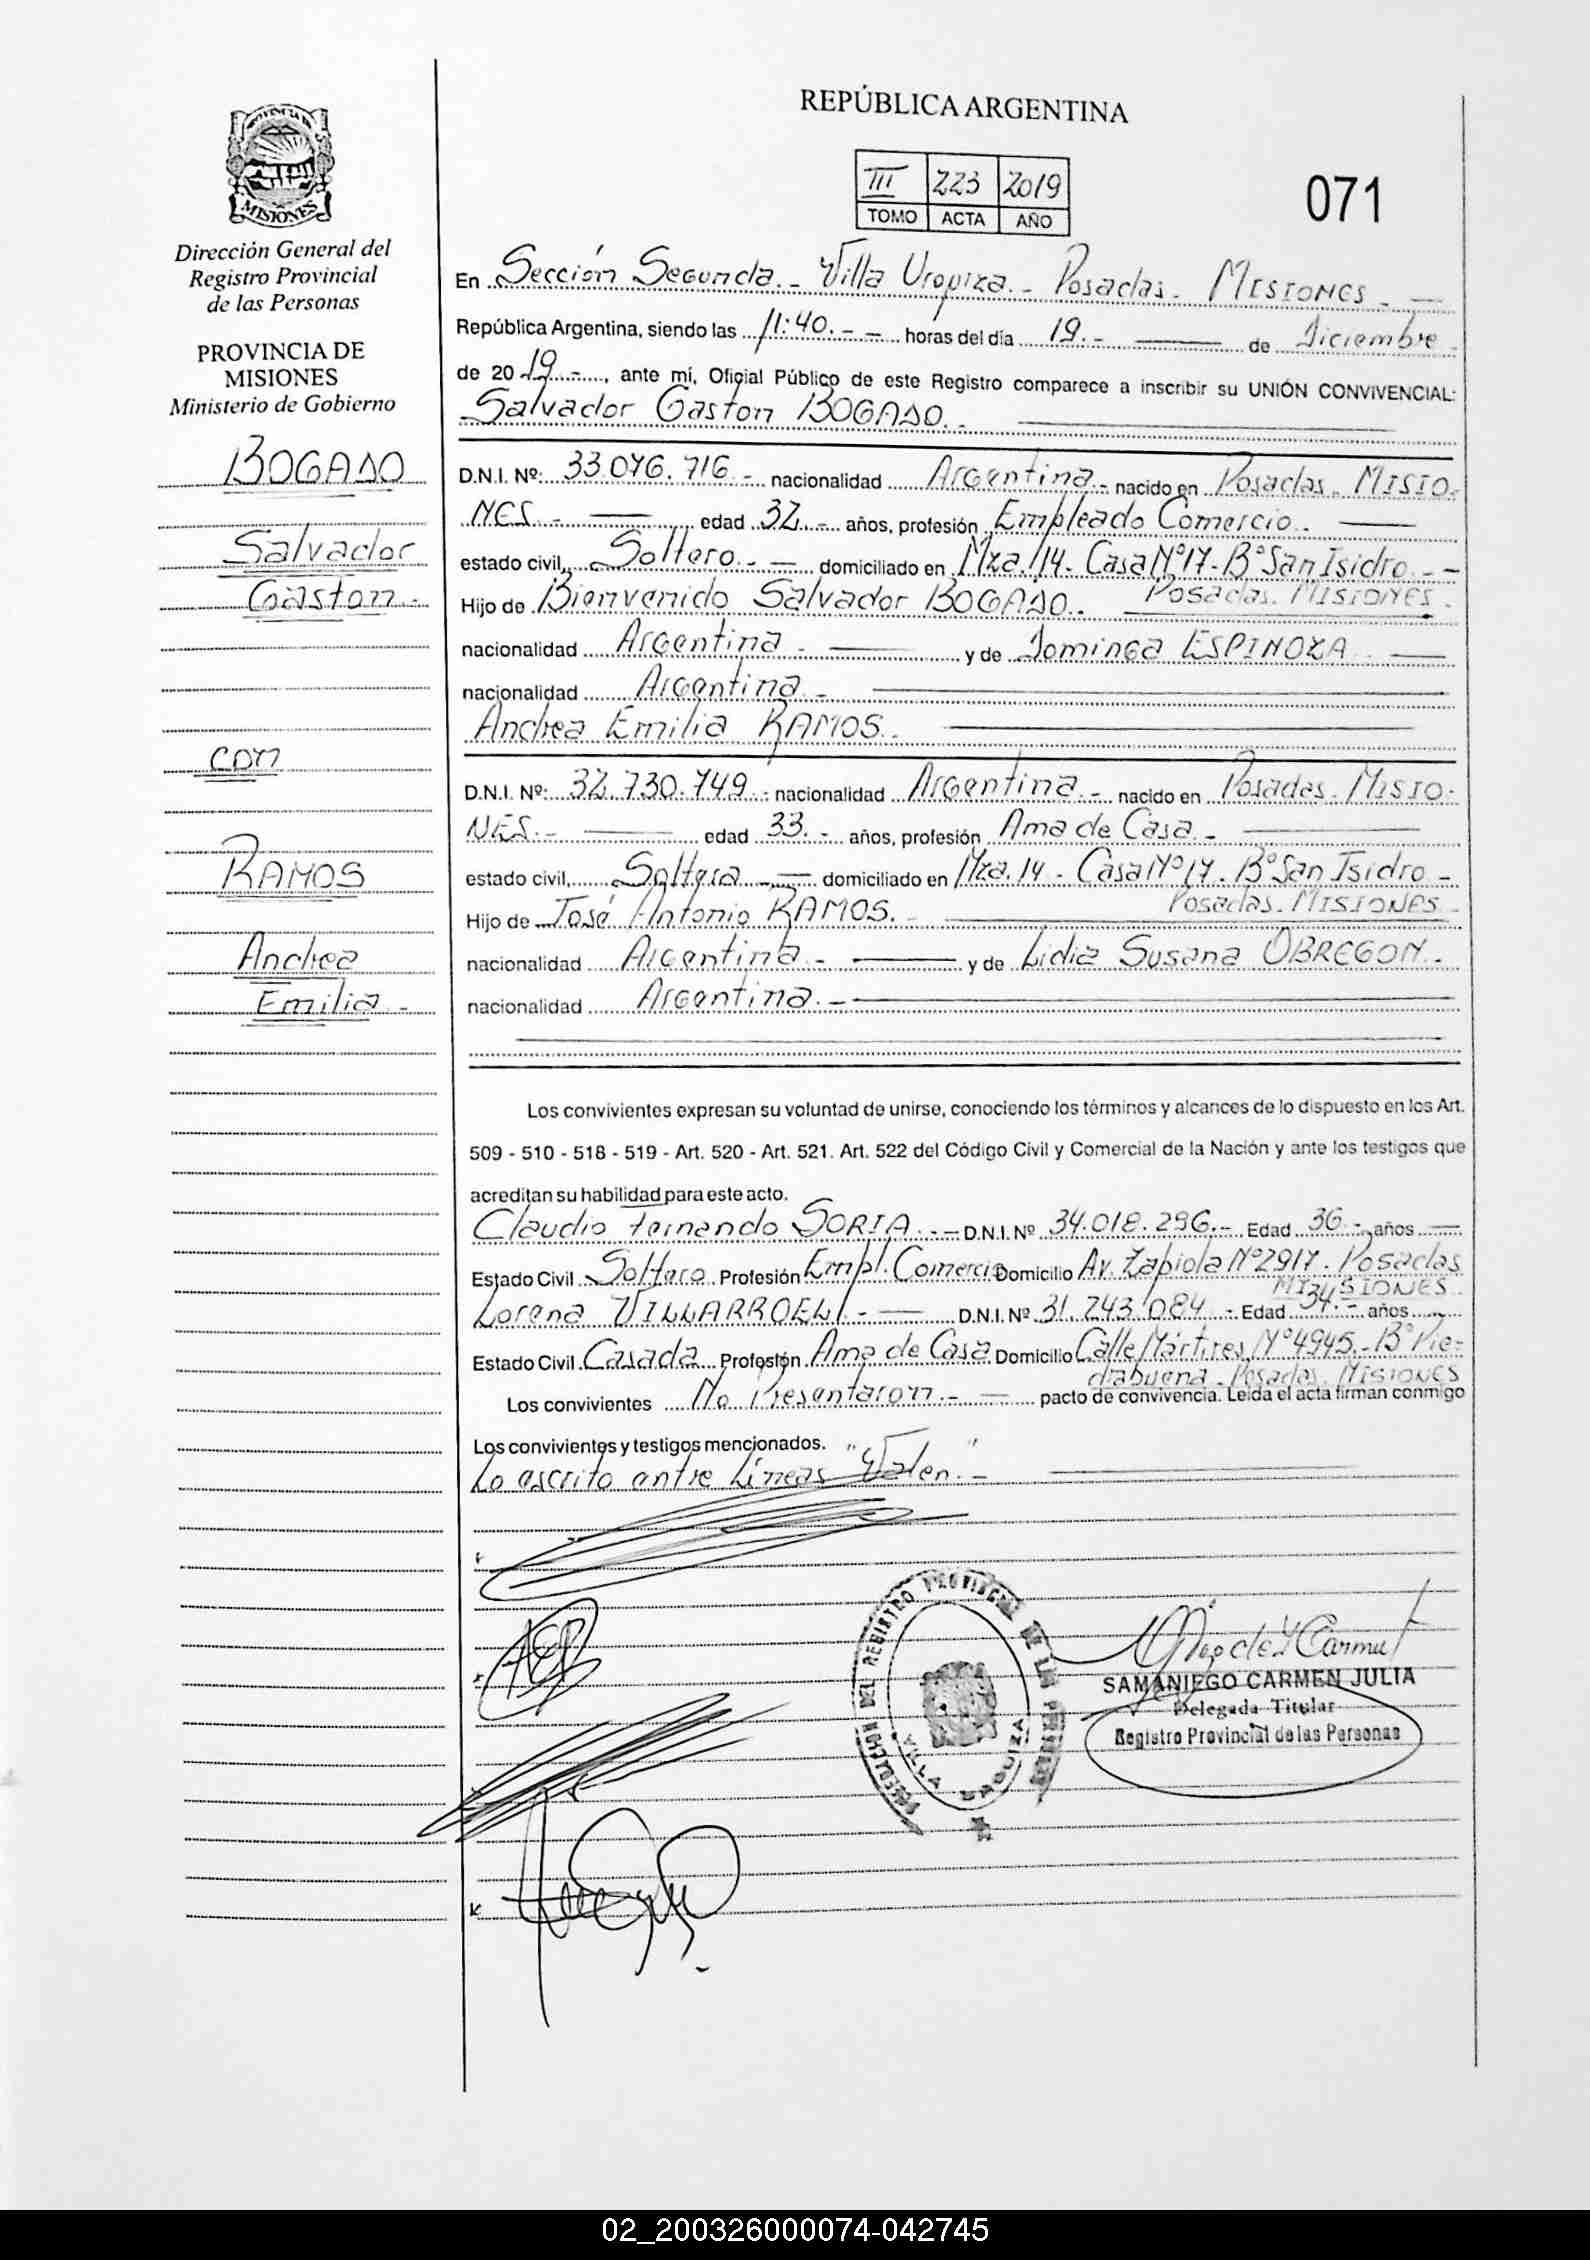 REPÚBLICA ARGENTINA
III 223 2019
TOMO ACTA AÑO
071
PROVINCIA DE
MISIONES
Dirección General del
Registro Provincial
de las Personas
PROVINCIA DE
MISIONES
Ministerio de Gobierno
BOGADO
Salvador
Gaston.-
con
RAMOS
Andrea
Emilia.-
En Sección Segunda.- Villa Urquiza.- Posadas.- MISIONES.-
República Argentina, siendo las 11:40.- horas del día 19.- de Diciembre
de 2019.-, ante mí, Oficial Público de este Registro comparece a inscribir su UNIÓN CONVIVENCIAL:
Salvador Gaston BOGADO.-
D.N.I. Nº: 33.076.716.- nacionalidad Argentina.- nacido en Posadas. MISIO-
NES.- edad 32.- años, profesión Empleado Comercio.
estado civil, Soltero.- domiciliado en Mza. 14- Casa Nº 17- Bº San Isidro.-
Hijo de Bienvenido Salvador BOGADO. Posadas. MISIONES.
nacionalidad Argentina.- y de Dominga ESPINOZA
nacionalidad Argentina.-
Andrea Emilia RAMOS.
D.N.I. Nº: 32.730.749.- nacionalidad Argentina.- nacido en Posadas. MISIO-
NES.- edad 33.- años, profesión Ama de Casa.-
estado civil, Soltera.- domiciliado en Mza. 14- Casa Nº 17. Bº San Isidro-
Hijo de José Antonio RAMOS.- Posadas. MISIONES
nacionalidad Argentina.- y de Lidia Susana OBREGON.
nacionalidad Argentina.-
Los convivientes expresan su voluntad de unirse, conociendo los términos y alcances de lo dispuesto en los Art.
509 - 510 - 518 - 519 - Art. 520 - Art. 521. Art. 522 del Código Civil y Comercial de la Nación y ante los testigos que
acreditan su habilidad para este acto.
Claudio Fernando SORIA.- D.N.I. Nº 34.018.296.- Edad 36.- años
Estado Civil Soltero Profesión Empl. Comercio Domicilio Av. Zapiola Nº 2917. Posadas
MISIONES
Lorena VILLARROEL.- D.N.I. Nº 31.243.084.- Edad 34.- años
Estado Civil Casada Profesión Ama de Casa Domicilio Calle Mártires Nº 4945.- Bº Pie-
drabuena. Posadas. MISIONES
Los convivientes No Presentaron.- pacto de convivencia. Leída el acta firman conmigo
Los convivientes y testigos mencionados.
Lo escrito entre Líneas "Valen".-
DELEGACION DEL REGISTRO PROVINCIAL DE LAS PERSONAS
VILLA URQUIZA
SAMANIEGO CARMEN JULIA
Delegada Titular
Registro Provincial de las Personas
02_200326000074-042745